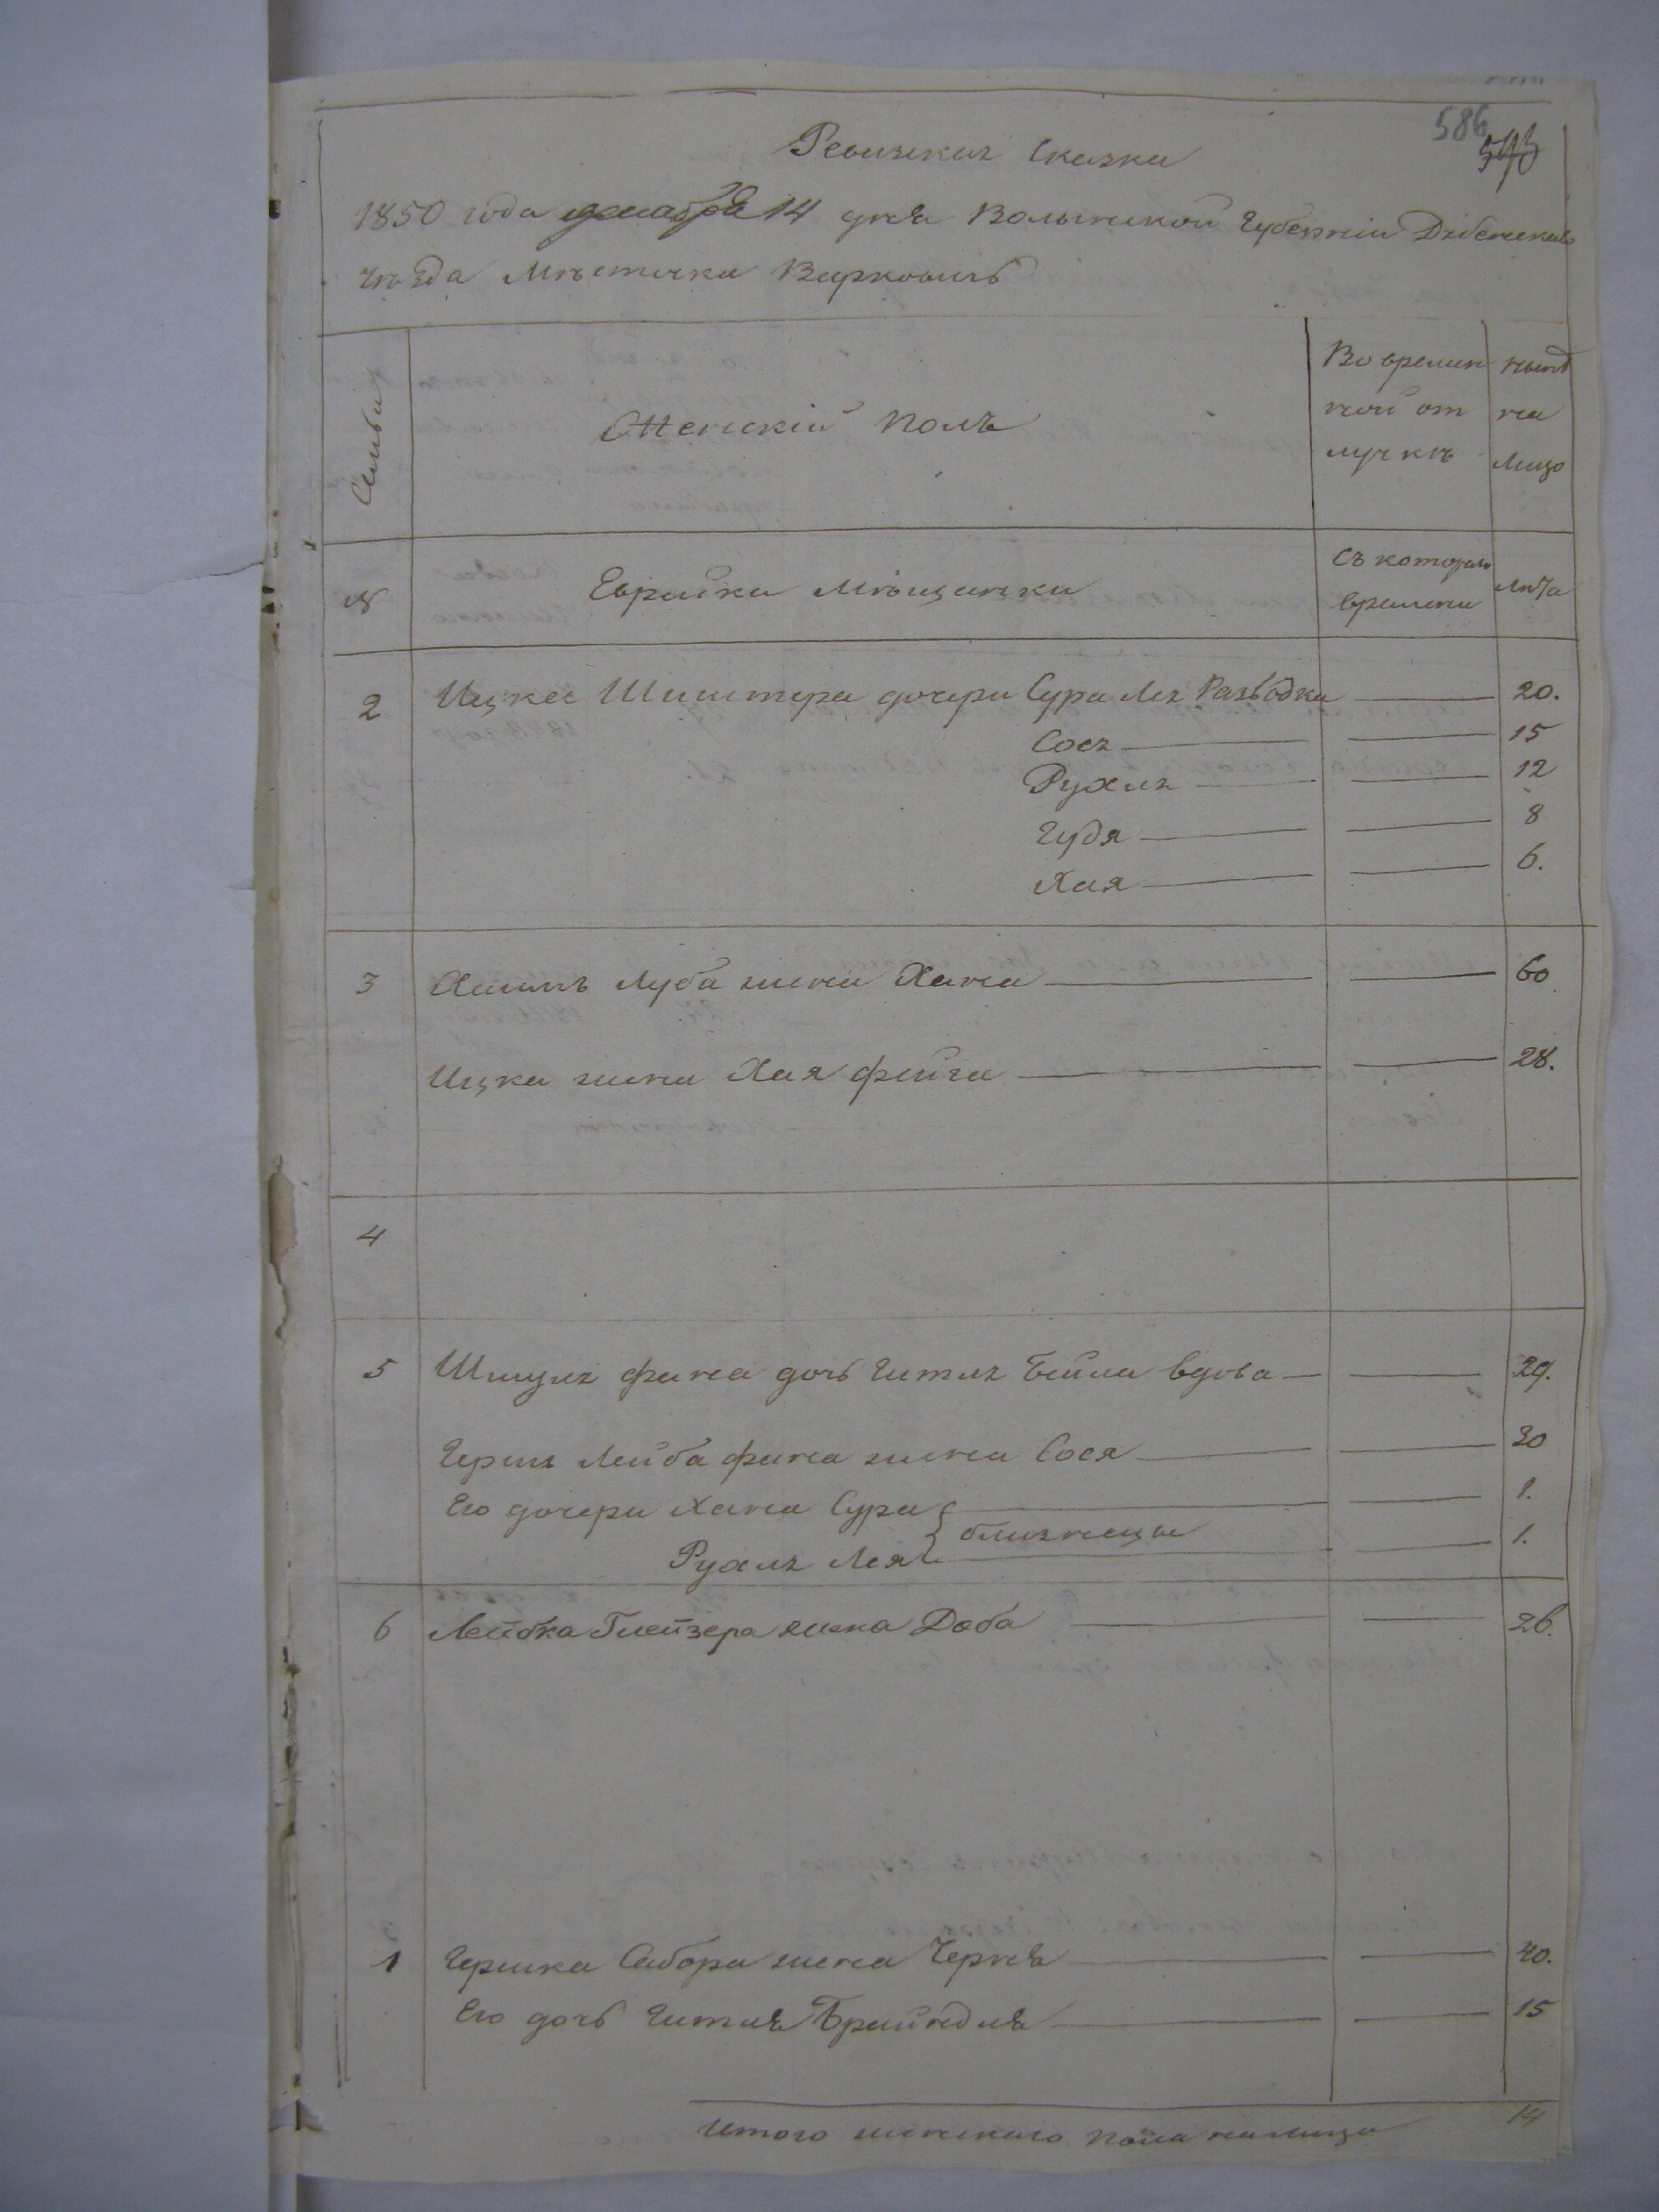 586
593
Ревизская Сказка
1850 года декабря 14 дня Волынской Губерніи Дубенскаго
уѣзда Мѣстечка Варковичъ
Семьи
Женскій Полъ
Во времен
ной от
лучкѣ
нынѣ
на
лицо
№
Еврейки Мѣщанки
Съ котораго
времени
Лѣта
2 Ицка Шистера дочери Сура Лея Разводка 20.
Сося 15
Рухля 12
Гудя 8
Хая 6.
3 Хаимъ Луба жена Хана 60
Ицка жена Хая фейга 28.
4
5 Шмуля фина дочь Гитля Бейла вдова 29.
Герша Лейба фина жена Сося 30
Его дочери Хана Сура 1.
близнецы
Рухля Лея 1.
6 Лейбка Глейзера жена Доба 26.
1 Гершка Сабора жена Черня 40.
Его дочь Гитля Брайндля 15
Итого женскаго пола налицо 14